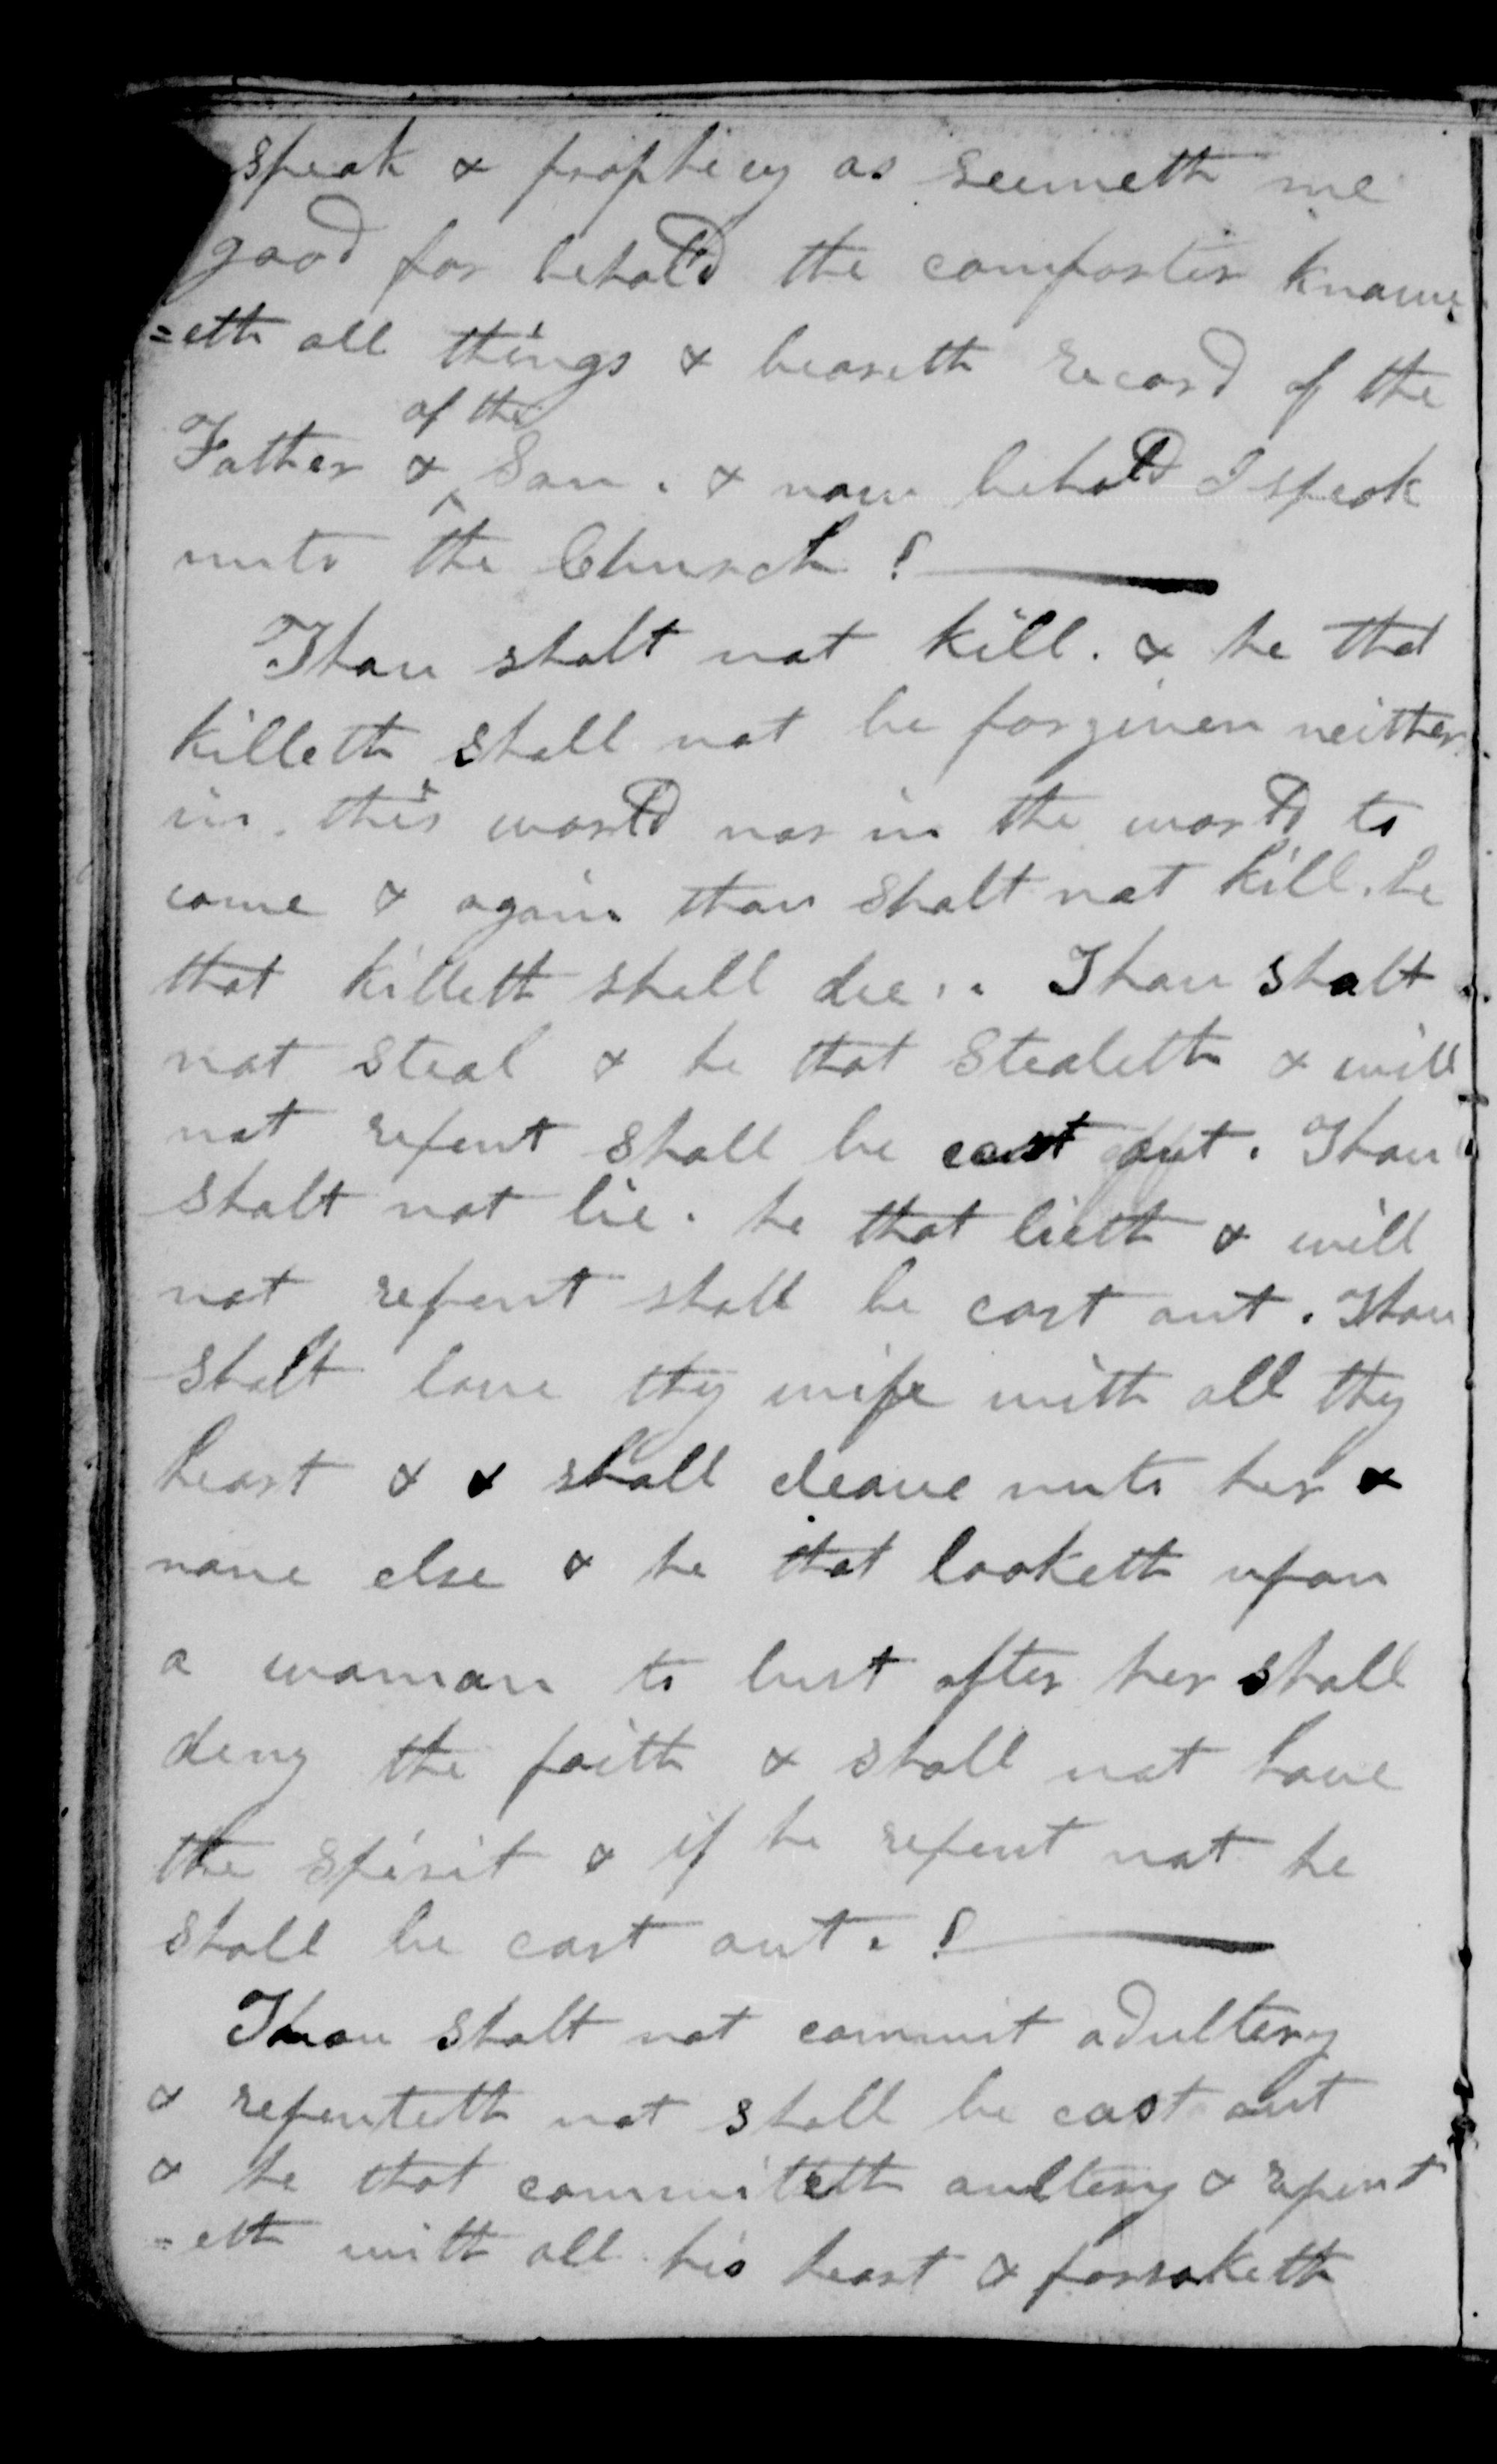 speak & prophecy as seemeth me
good for behold the comforter know
=eth all things & beareth record of the
of the
Father & ^ Son. & now behold I speak
unto the Church!
Thou shalt not kill. & he that
killeth shall not be forgiven neither
in this world nor in the world to
come & again thou shalt not kill. he
that killeth shall die.. Thou shalt
not steal & he that stealeth & will
not repent shall be cast out. Thou
shalt not lie. he that lieth & will
not repent shall be cast out. Thou
shalt love thy wife with all thy
heart & & shall cleave unto her &
none else & he that looketh upon
a woman to lust after her shall
deny the faith & shall not have
the spirit & if he repent not he
shall be cast out. !
Thou shalt not commit adultery
& repenteth not shall be cast out
& he that committeth aultery & repent
=eth with all his heart & forsaketh